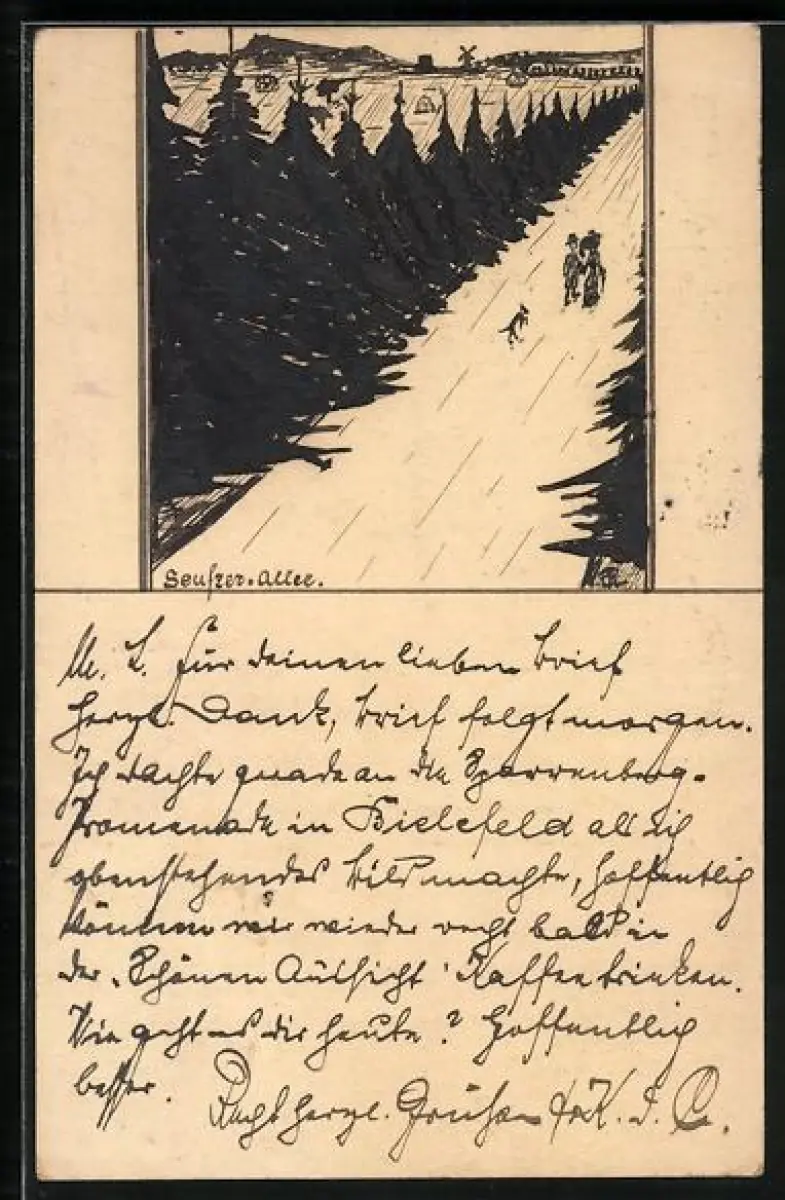 Seufzer-Allee.
M. L. Für deinen lieben Brief
herzl. Dank, Brief folgt morgen.
Ich dachte grade an die Sparrenberg-
Promenade in Bielefeld als ich
obenstehendes Bild machte, hoffentlich
können wir wieder recht bald in
der "Schönen Aussicht" Kaffee trinken.
Wie geht es dir heute? Hoffentlich
besser.
Recht herzl. Grüße